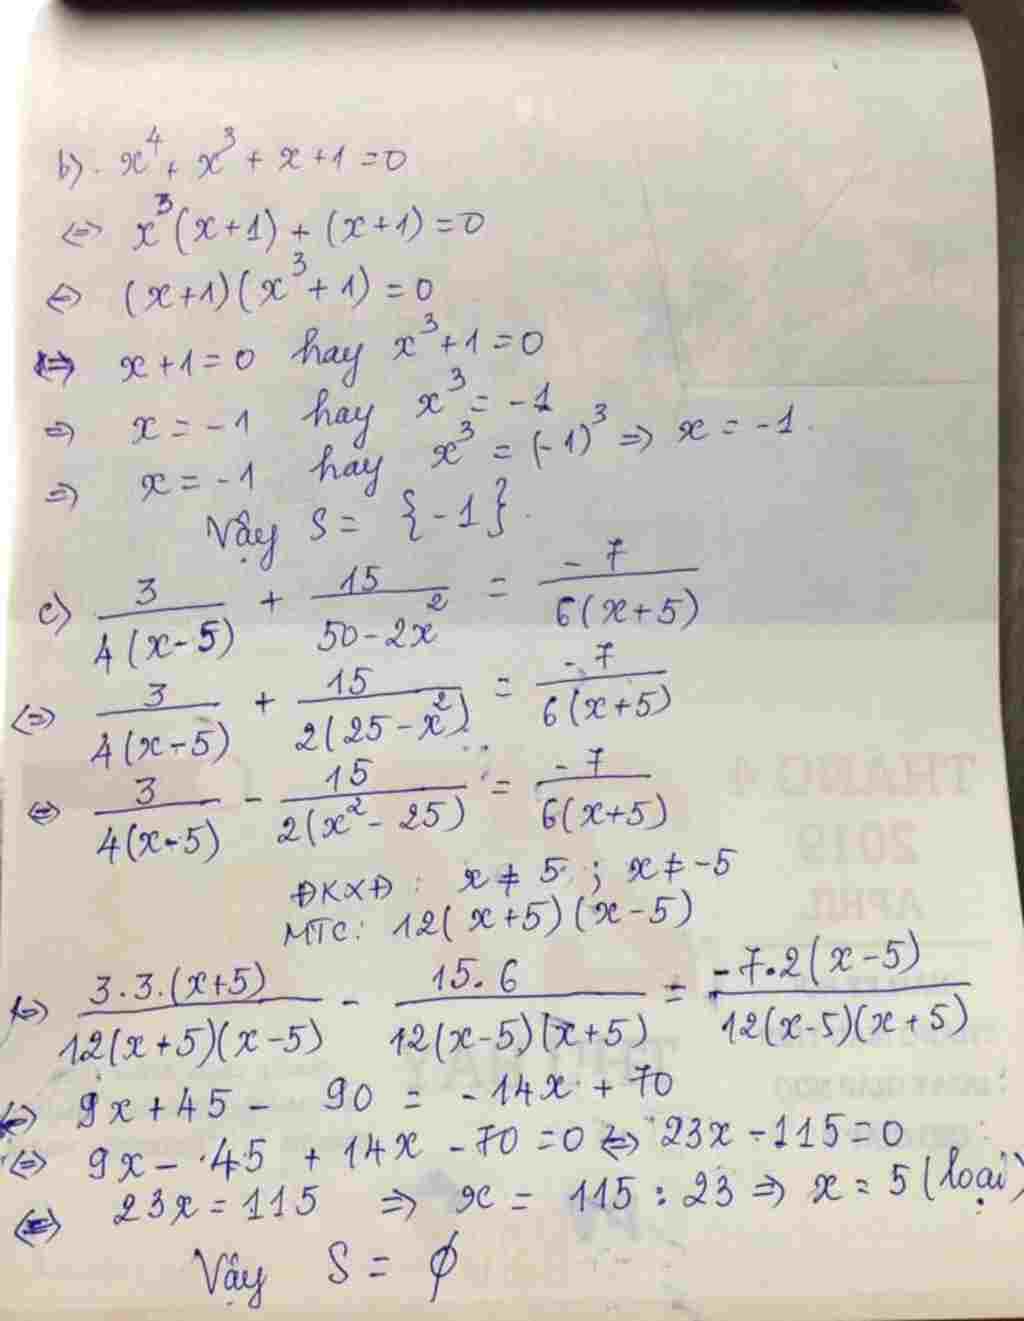 b). x⁴ + x³ + x + 1 = 0
⇔ x³(x+1) + (x+1) = 0
⇔ (x+1)(x³+1) = 0
⇔ x+1 = 0 hay x³+1 = 0
⇒ x = -1 hay x³ = -1
⇒ x = -1 hay x³ = (-1)³ ⇒ x = -1.
Vậy S = {-1}.
c) 3/4(x-5) + 15/50-2x² = -7/6(x+5)
⇔ 3/4(x-5) + 15/2(25-x²) = -7/6(x+5)
⇔ 3/4(x-5) - 15/2(x²-25) = -7/6(x+5)
ĐKXĐ: x ≠ 5 ; x ≠ -5
MTC: 12(x+5)(x-5)
⇔ 3.3.(x+5)/12(x+5)(x-5) - 15.6/12(x-5)(x+5) = -7.2(x-5)/12(x-5)(x+5)
⇔ 9x + 45 - 90 = -14x + 70
⇔ 9x - 45 + 14x - 70 = 0 ⇔ 23x - 115 = 0
⇔ 23x = 115 ⇒ x = 115 : 23 ⇒ x = 5 (loại)
Vậy S = ∅
THÁNG 4
2019
APRIL